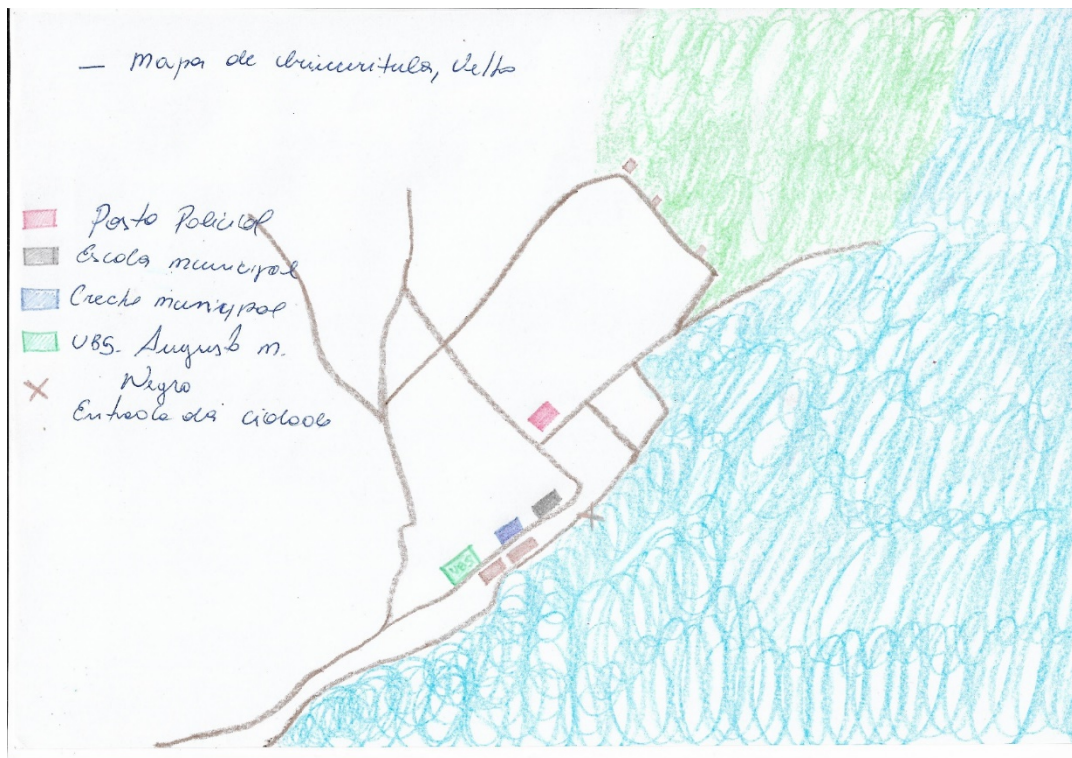 — Mapa de Velho
Posto Policial
Escola municipal
Creche municipal
UBS. Augusto m.
Negro
Entrada da cidade
UBS